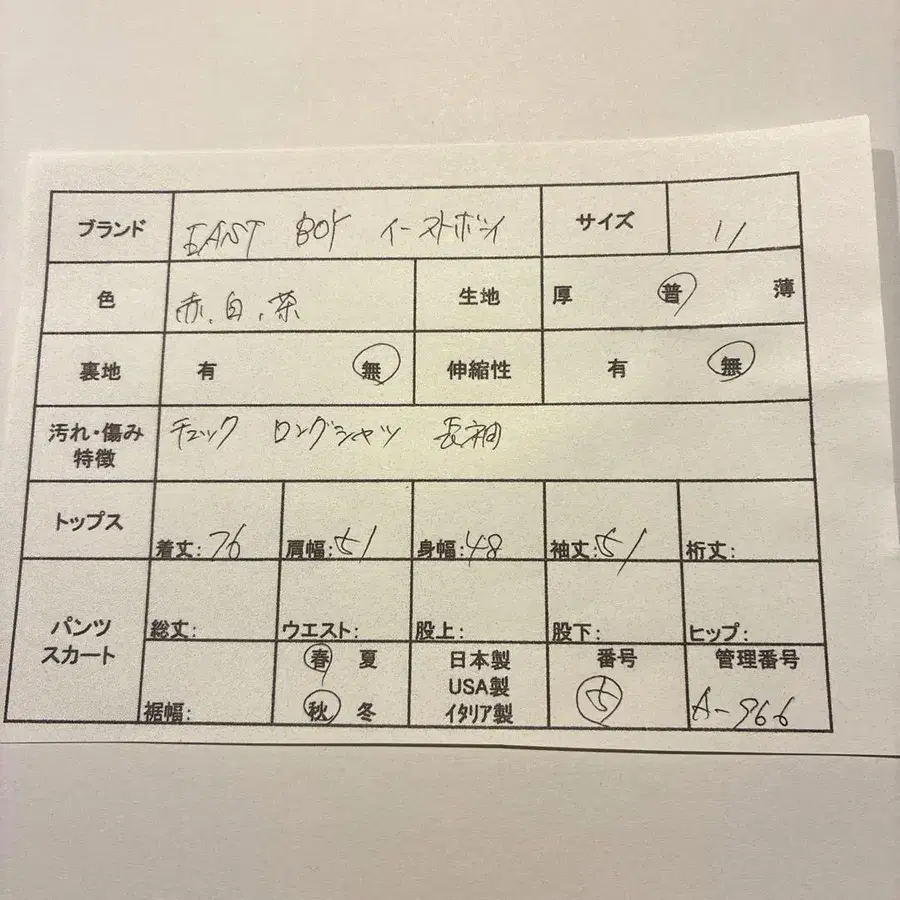 ブランド EAST BOY イーストボーイ サイズ 11
色 赤、白、茶 生地 厚 普 薄
裏地 有 無 伸縮性 有 無
汚れ・傷み
特徴
チェック ロングシャツ 長袖
トップス 着丈:76 肩幅:51 身幅:48 袖丈:51 裄丈:
パンツ
スカート
総丈: ウエスト: 股上: 股下: ヒップ:
裾幅:
春 夏
秋 冬
日本製
USA製
イタリア製
番号
5
管理番号
A-966